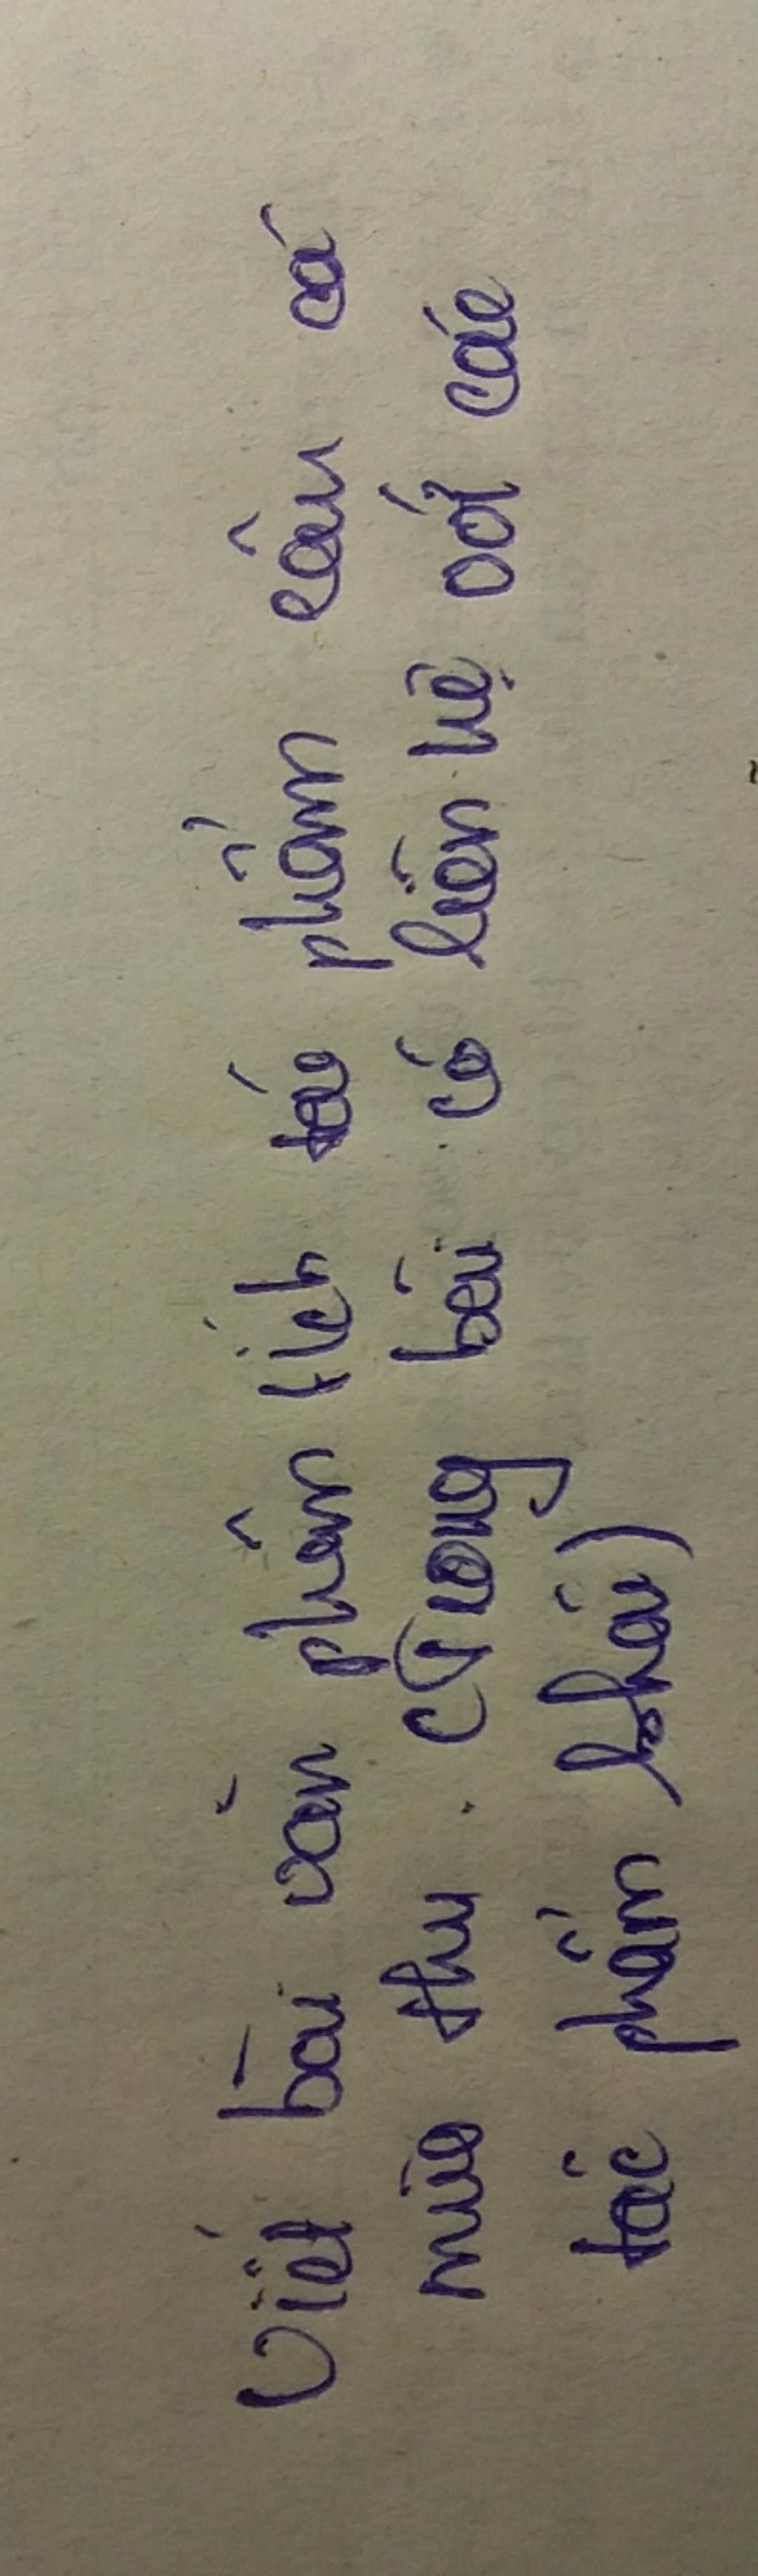 Viết bài văn phân tích tác phẩm câu cá
mùa thu. (Trong bài có liên hệ với các
tác phẩm khác)